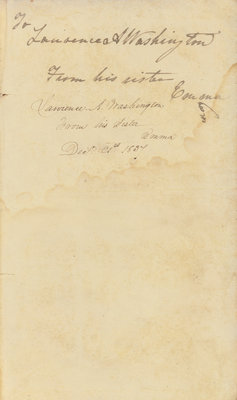 To
Lawrence A Washington
From his sister
Emma
Lawrence A. Washington
From his sister
Emma